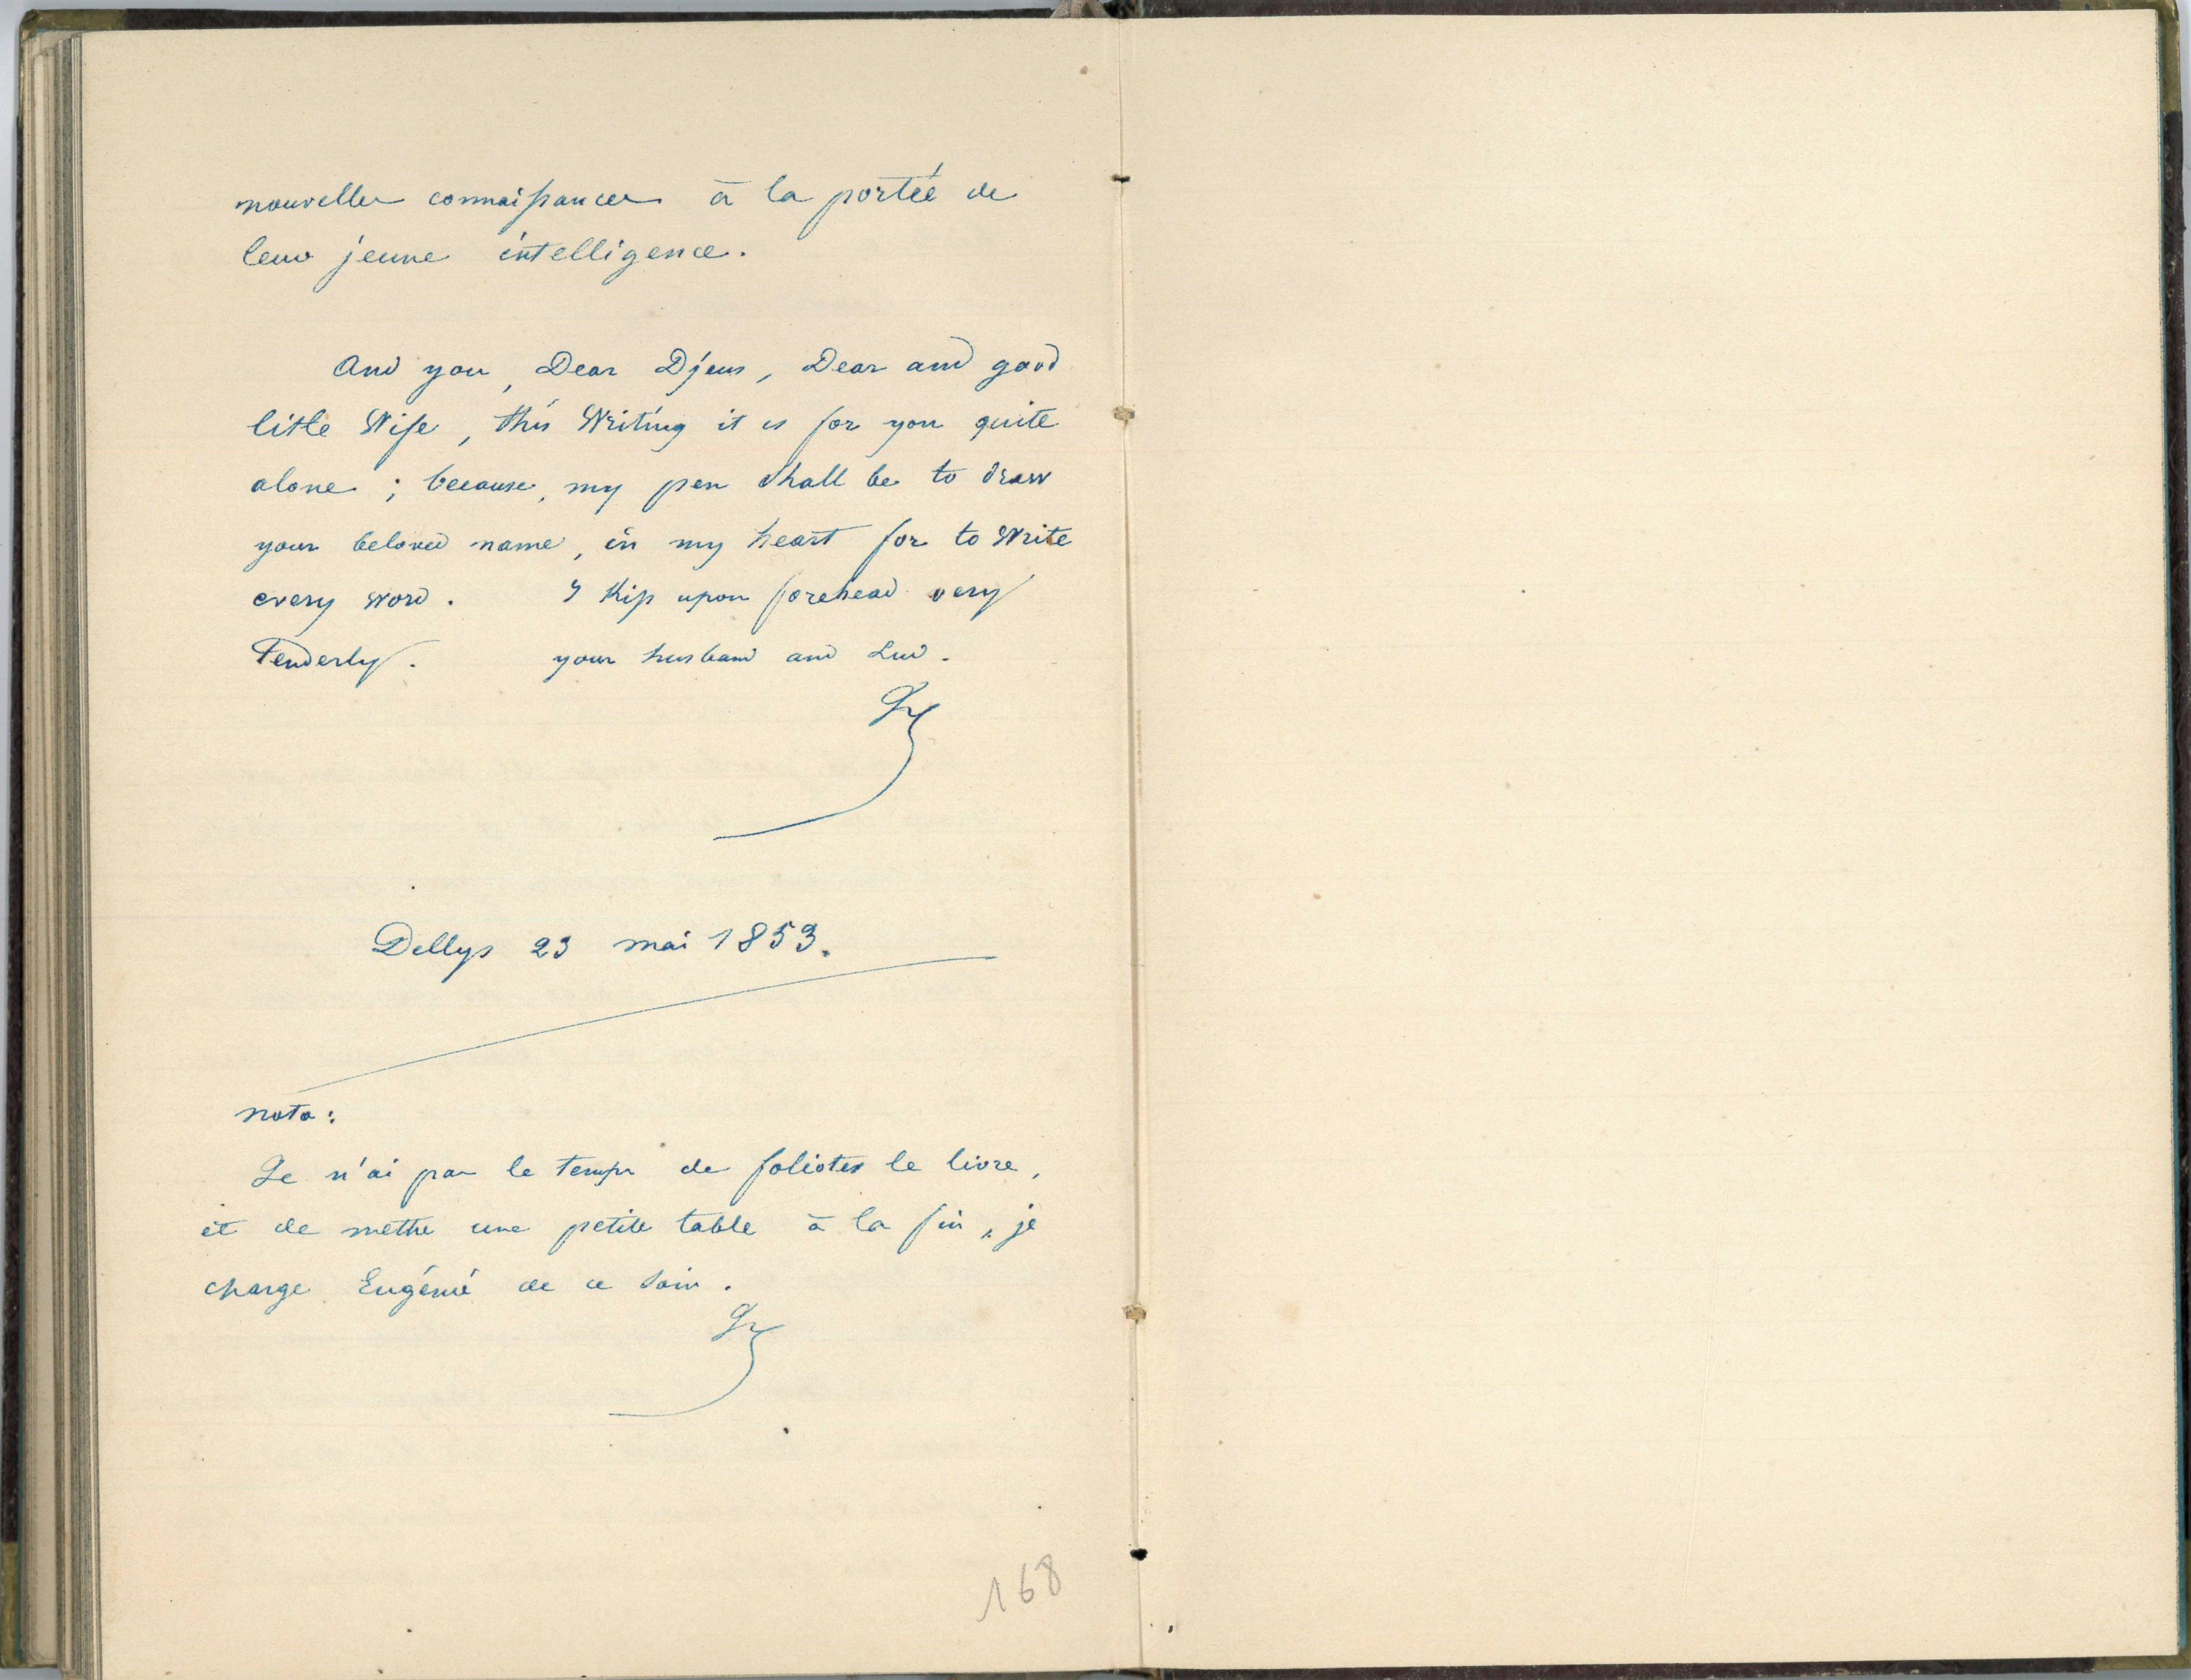 nouvelles connaissances à la portée de
leur jeune intelligence.
And you, Dear Djeus, Dear and good
little Wife, this Writing it is for you quite
alone ; because, my pen shall be to draw
your beloved name, in my heart for to Write
every word. I Kiss upon forehead very
Tenderly. your husband and
Dellys 23 mai 1853.
nota :
Je n'ai pas le temps de folioter le livre,
et de mettre une petite table à la fin, je
charge Eugénie de ce soin.
168